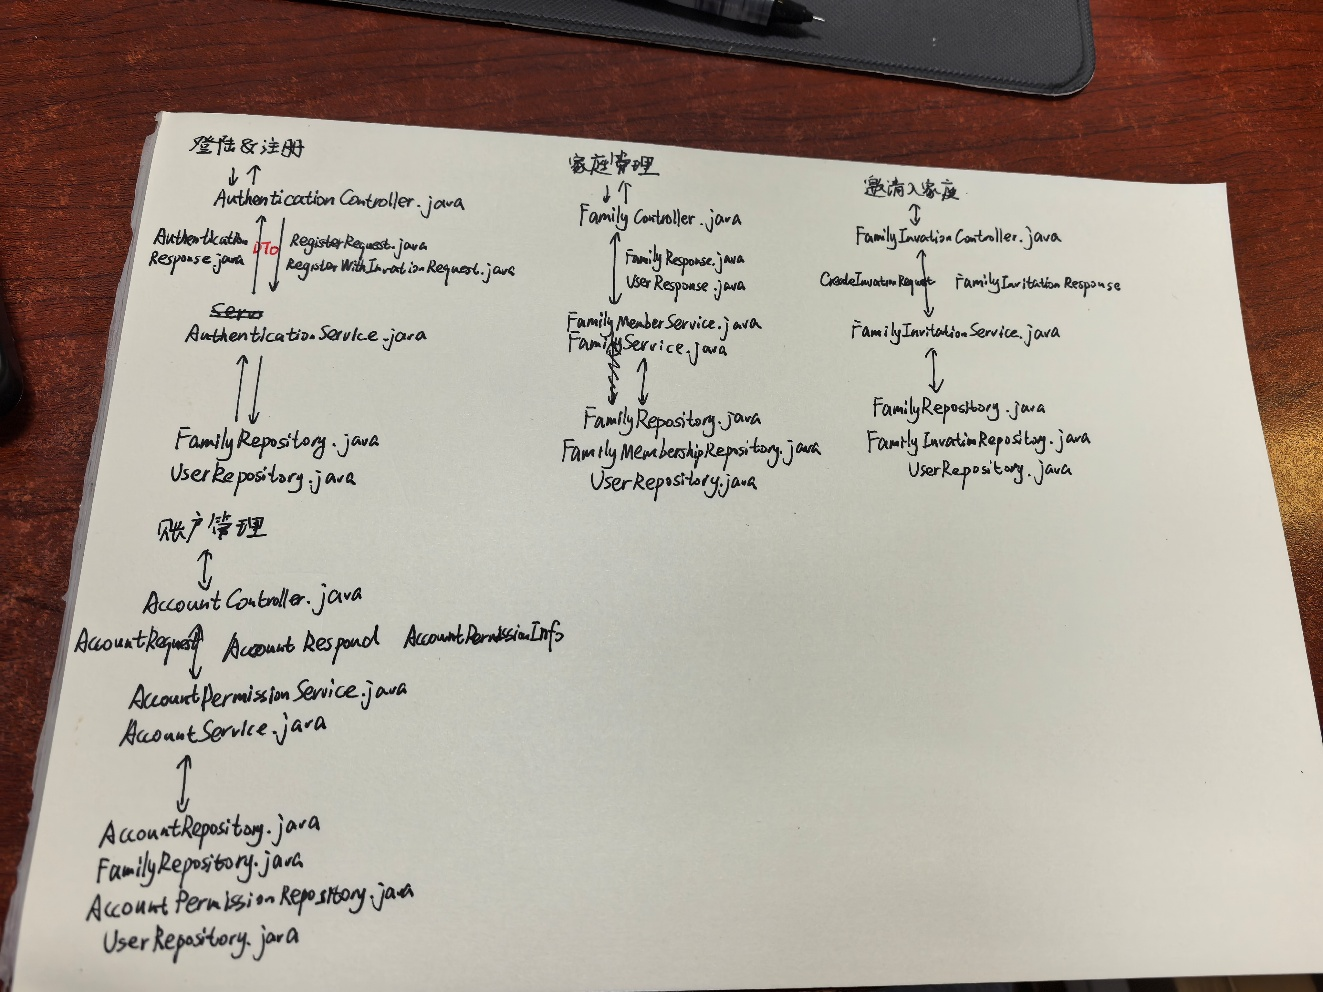 登陆&注册
Authentication Controller.java
Authentication
Response.java
DTO
RegisterRequest.java
RegisterWithInvationRequest.java
AuthenticationService.java
FamilyRepository.java
UserRepository.java
账户管理
AccountController.java
AccountRequest
Account Respond
AccountPermissionInfo
AccountPermissionService.java
AccountService.java
AccountRepository.java
FamilyRepository.java
AccountPermissionRepository.java
UserRepository.java
家庭管理
Family Controller.java
FamilyResponse.java
UserResponse.java
FamilyMemberService.java
FamilyService.java
FamilyRepository.java
FamilyMembershipRepository.java
UserRepository.java
邀请入家庭
FamilyInvationController.java
CreateInvationRequest
FamilyInvitationResponse
FamilyInvitationService.java
FamilyRepository.java
Family InvationRepository.java
UserRepository.java